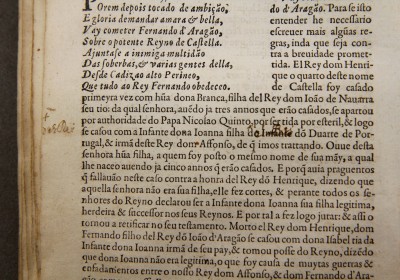 Porem depois tocado de ambição,
E gloria demandar amara & bella,
Vay cometer Fernando d'Aragão,
Sobre o potente Reyno de Castella.
Ajuntase a inimiga multidão
Das soberbas, & varias gentes della,
Desde Cadiz ao alto Perineo,
Que tudo ao Rey Fernando obedeceo.
do d'Aragão. Para se isto
entender he necessario
escreuer mais algũas re-
gras, inda que seja con-
tra a breuidade prome-
tida. El Rey dom Henri-
que o quarto deste nome
de Castella foy casado
primeyra vez com hũa dona Branca, filha del Rey dom Ioão de Nauarra
seu tio: da qual senhora, auẽdo ja tres annos que erão casados, se apartou
por authoridade do Papa Nicolao Quinto por ser tida por esteril, & logo
se casou com a Infante dona Ioanna filha do Infante dõ Duarte de Por-
tugal, & irmã deste Rey dom Affonso, de q̃ imos trattando. Ouue desta
senhora hũa filha, a quem foy posto o mesmo nome de sua mãy, a qual
lhe naceo auendo ja cinco annos q̃ erão casados. E porq̃ auia praguentos
q̃ fallauão neste caso contra a honra del Rey dõ Henrique, dizendo que
aquella senhora não era sua filha, elle fez cortes, & perante todos os se-
nhores do Reyno declarou ser a Infante dona Ioanna sua filha legitima,
herdeira & successor nos seus Reynos. E por tal a fez logo jurar: & assi o
tornou a retificar no seu testamento. Morto el Rey dom Henrique, dom
Fernando filho del Rey dõ Ioão d'Aragão se casou com dona Isabel tia da
Infante dona Ioanna irmã de seu pay, & tomou posse do Reyno, dizẽdo
que dona Ioanna não era legitima, o que foy causa de muytas guerras &
enfadamentos entre o nosso Rey dom Affonso, & dom Fernando d'Ara-